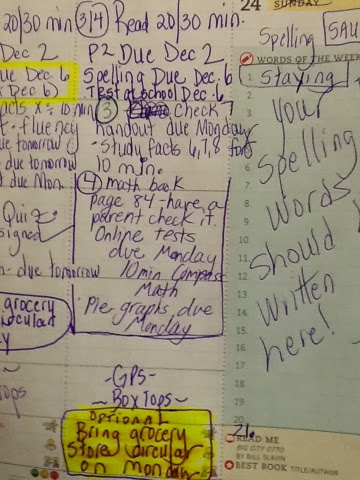 20/30 min
Dec 2
ue Dec. 6
Dec 6)
acts x ÷ 10 min
t. fluency
ue tomorrow
due tomorrow
t due Mon.
Quiz
signed
n- due tomorrow
grocery
circular
ay
Tops
3/4 Read 20/30 min.
P2 Due Dec 2
Spelling Due Dec. 6
Test at School Dec. 6
3 Check 7
handout due Monday
- Study facts 6,7,8 for
10 min.
4 math book
page 84 - have a
parent check it.
Online tests
due Monday
10 min Compass
Math
Pie graphs due
Monday
~GPS~
~Box Tops~
OPTIONAL
Bring grocery
Store circular
on Monday
24 SUNDAY
Spelling SAU
WORDS OF THE WEEK
1. Staying
2.
3. your
4.
5. Spelling
6.
7.
8. Words
9.
10.
11. Should
12.
13. Written
14.
15. here!
16.
17.
18.
19.
20.
26
READ ME
BIG CITY OTTO
BY BILL SLAVIN
BEST BOOK TITLE/AUTHOR